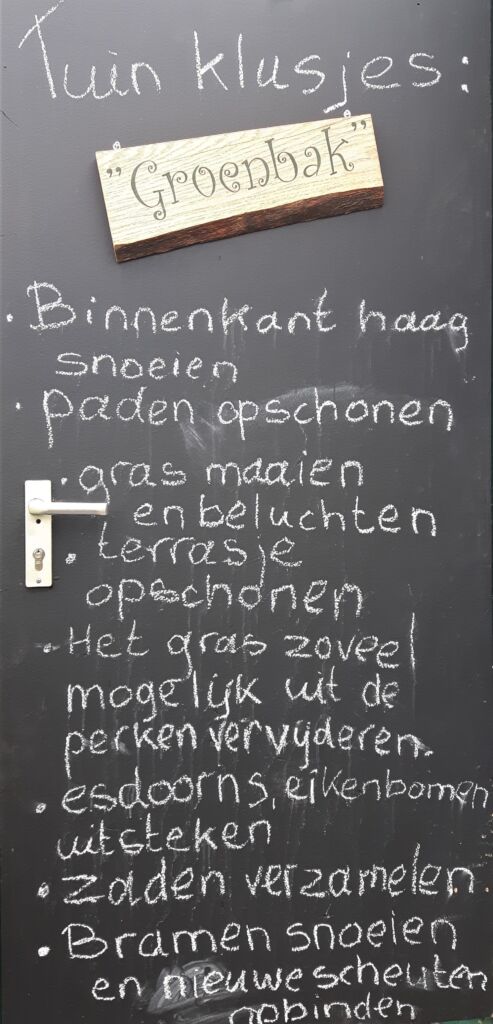 Tuin klusjes:
"Groenbak"
· Binnenkant haag
snoeien
· paden opschonen
· gras maaien
en beluchten
· terrasje
opschonen
· Het gras zoveel
mogelijk uit de
perken vervijderen.
· esdoorns, eikenbomen
uitsteken
· zaden verzamelen
· Bramen snoeien
en nieuwe scheuten
opbinden